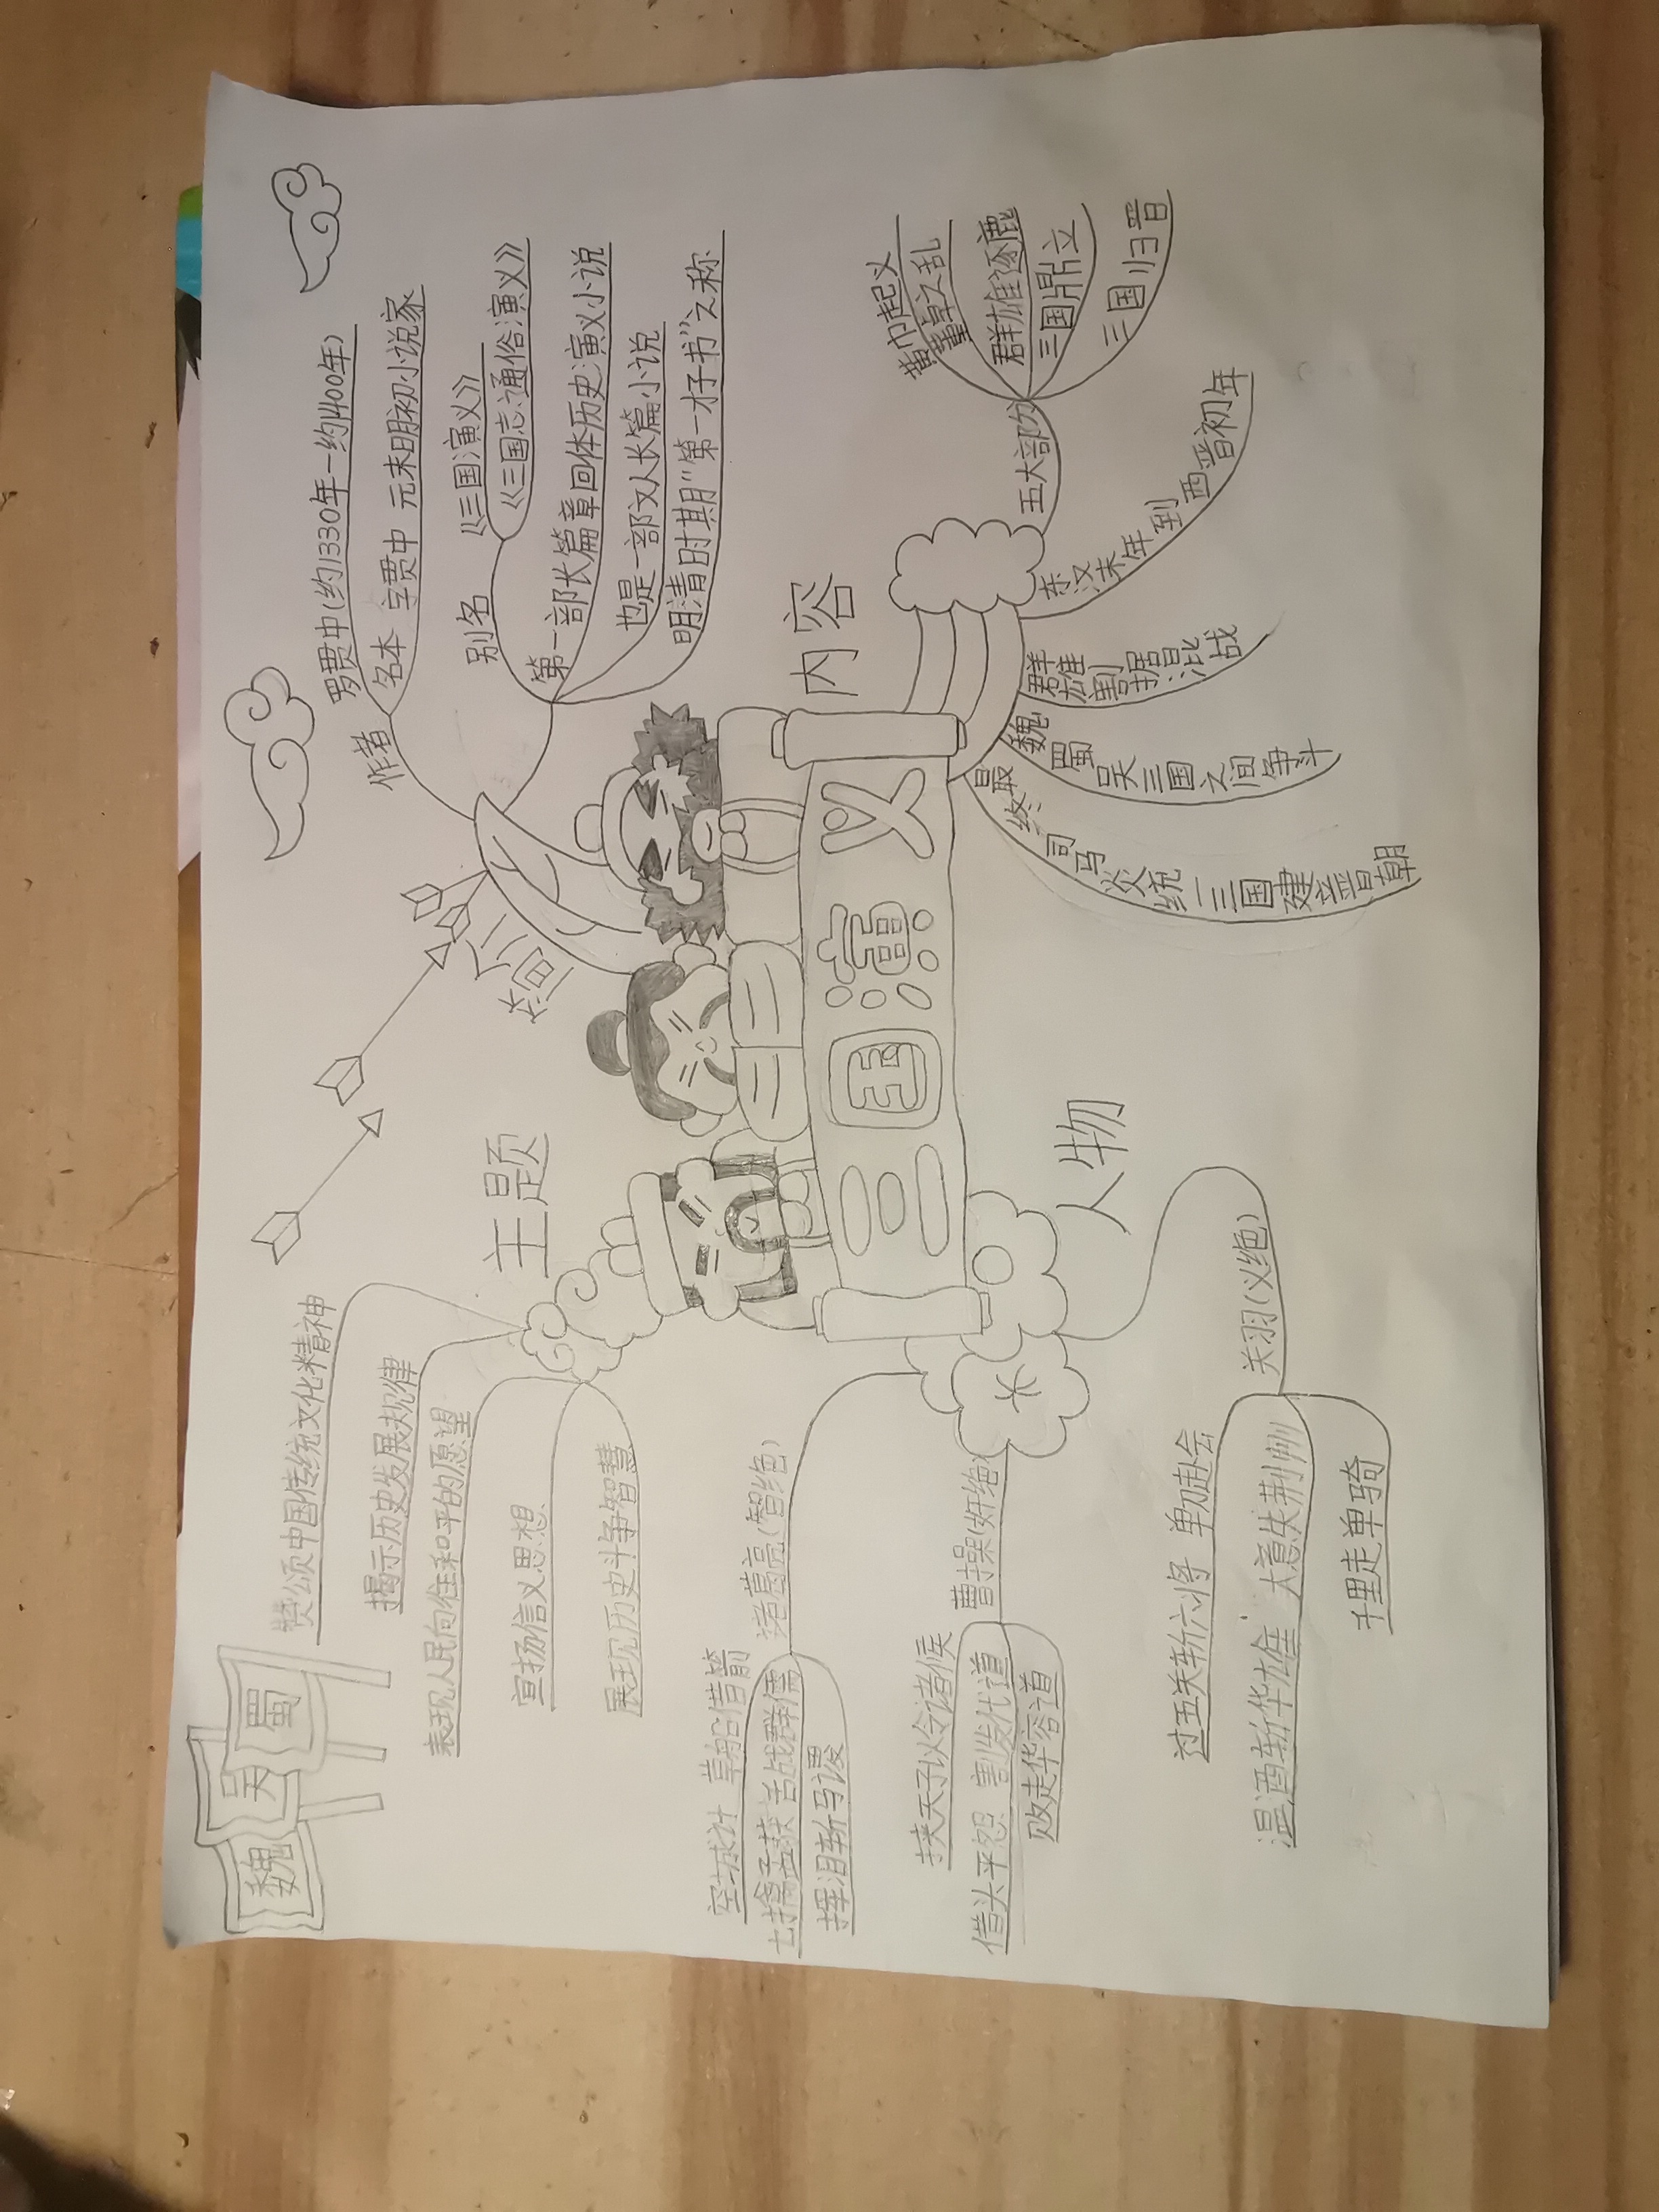 魏
吴
蜀
主题
赞颂中国传统文化精神
揭示历史发展规律
表现人民向往和平的愿望
宣扬信义思想
展现历史斗争智慧
简介
作者
罗贯中(约1330年-约1400年)
名本 字贯中 元末明初小说家
别名
《三国演义》
《三国志通俗演义》
第一部长篇章回体历史演义小说
也是一部文人长篇小说
明清时期“第一才子书”之称
三国演义
内容
五大部分
黄巾起义
董卓之乱
群雄逐鹿
三国鼎立
三国归晋
东汉末年到西晋初年
群雄割据混战
魏蜀吴三国之间争斗
最终司马炎统一三国建立晋朝
人物
诸葛亮(智绝)
空城计 草船借箭
七擒孟获 舌战群儒
挥泪斩马谡
曹操(奸绝)
挟天子以令诸候
借头平怨 割发代首
败走华容道
关羽(义绝)
过五关斩六将 单刀赴会
温酒斩华雄 大意失荆州
千里走单骑